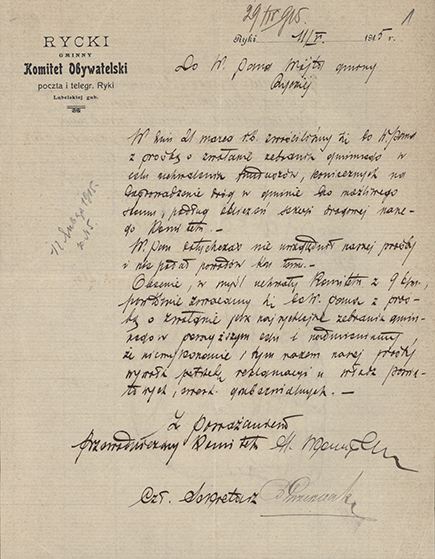 29/IV 915.
1
RYCKI
GMINNY
Komitet Obywatelski
poczta i telegr. Ryki
Lubelskiej gub.
Ryki 11/V 1915 r.
Do W. Pana Wójta gminy
W dniu 21 marca r.b. zwróciliśmy się do W. Pana
z prośbą o zwołanie zebrania gminnego w
celu uchwalenia funduszów, koniecznych na
doprowadzenie dróg w gminie do możliwego
stanu, podług obliczeń sekcji drogowej nasze-
go Komitetu.
W. Pan dotychczas nie uwzględnił naszej prośby
i nie podał powodów ku temu.
Obecnie, w myśl uchwały Komitetu z 9 b.m.,
powtórnie zwracamy się do W. Pana z proś-
bą o zwołanie jak najrychlej zebrania gmin-
nego w powyższym celu i nadmieniamy,
że niewykonanie i tym razem naszej prośby
wywoła potrzebę reklamacji u władz powia-
towych, wzgl. gubernialnych. —
Z poważaniem
Przewodniczący Komitetu
Czł. Sekretarz